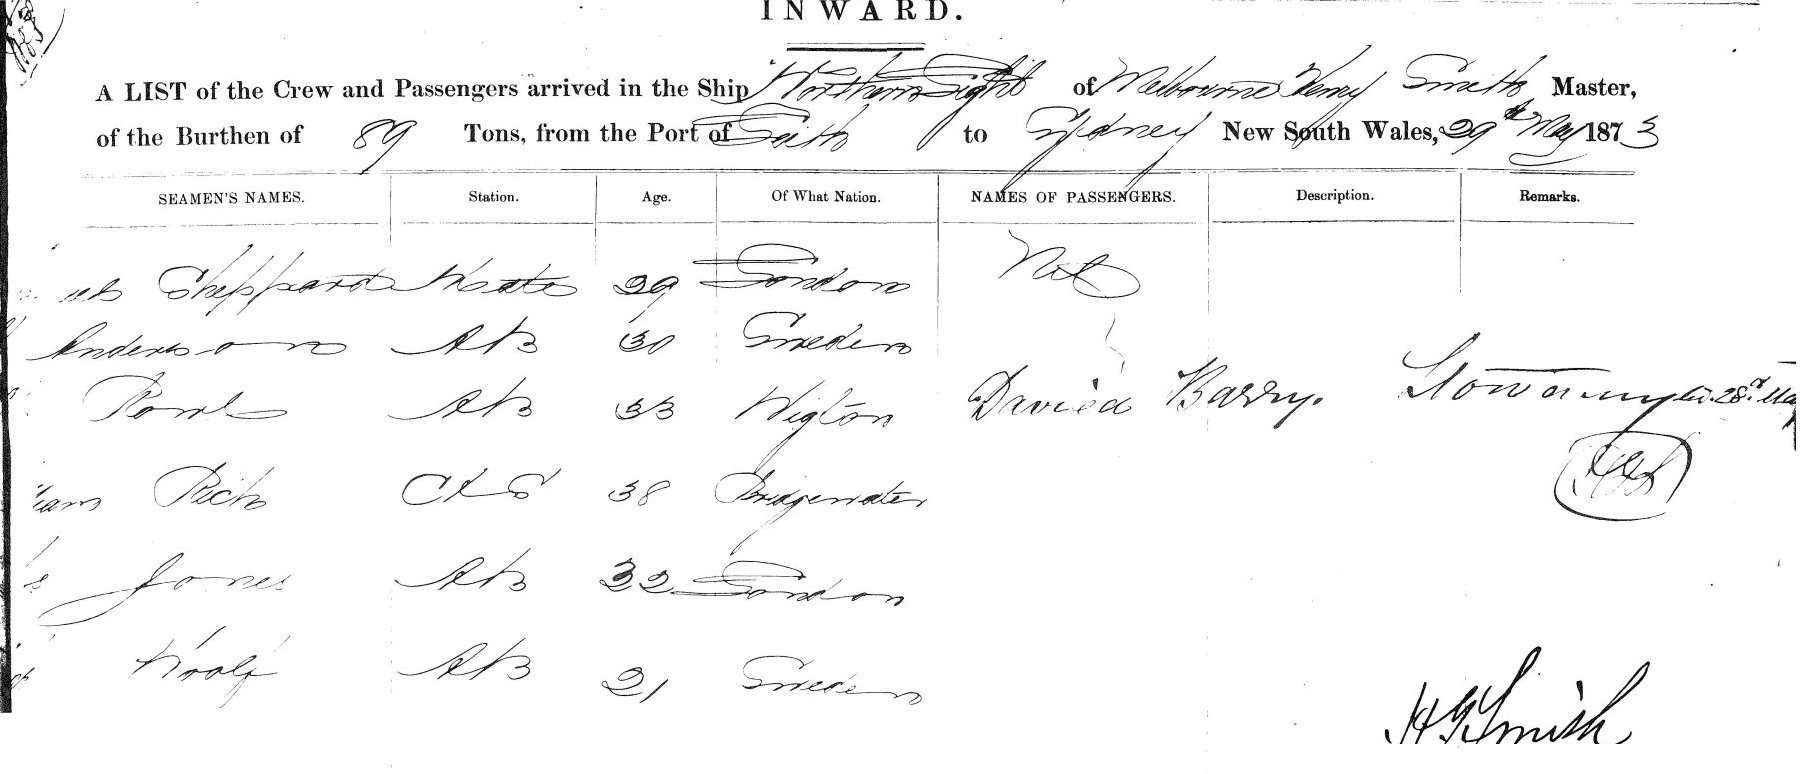 INWARD.
A LIST of the Crew and Passengers arrived in the Ship Northern Light of Melbourne Henry Smith Master,
of the Burthen of 89 Tons, from the Port of to Sydney New South Wales, 29th May 1873
SEAMEN'S NAMES. Station. Age. Of What Nation. NAMES OF PASSENGERS. Description. Remarks.
Sheppard Mate 29 London Nil
Anderson AB 30 Sweden
AB 33 Wigton David Barry. Stowaway
Rich C & S 38 Bridgewater
Jones AB 32 London
Woolf AB 21 Sweden
H G Smith